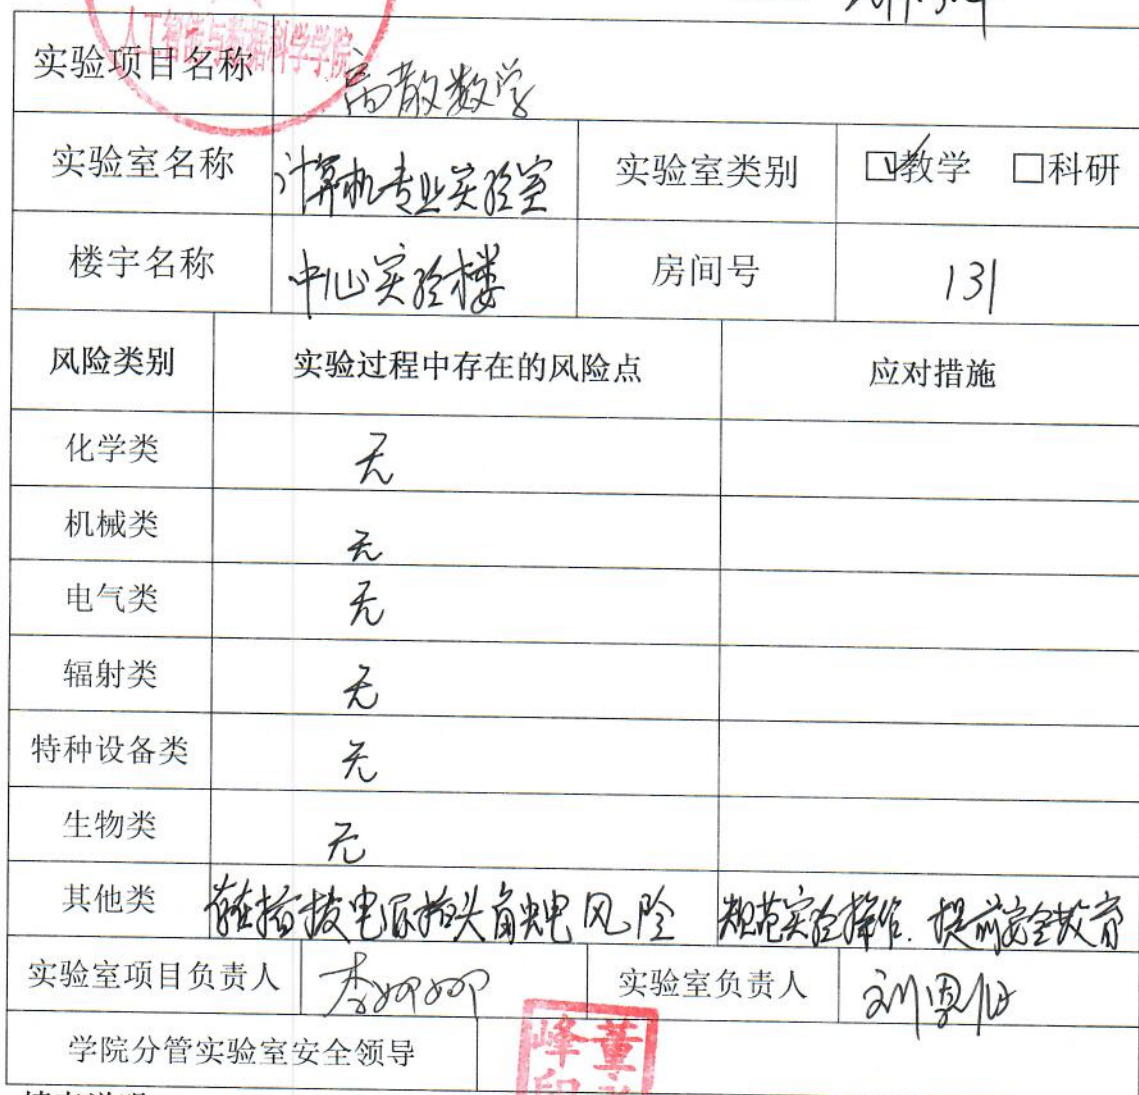 人工智能与数据科学学院
实验项目名称 离散数学
实验室名称 计算机专业实验室 实验室类别 ☑教学 □科研
楼宇名称 中心实验楼 房间号 131
风险类别 实验过程中存在的风险点 应对措施
化学类 无
机械类 无
电气类 无
辐射类 无
特种设备类 无
生物类 无
其他类 存在插拔电源插头触电风险 规范实验操作.提前安全教育
实验室项目负责人 李娜娜 实验室负责人
学院分管实验室安全领导 董峰印